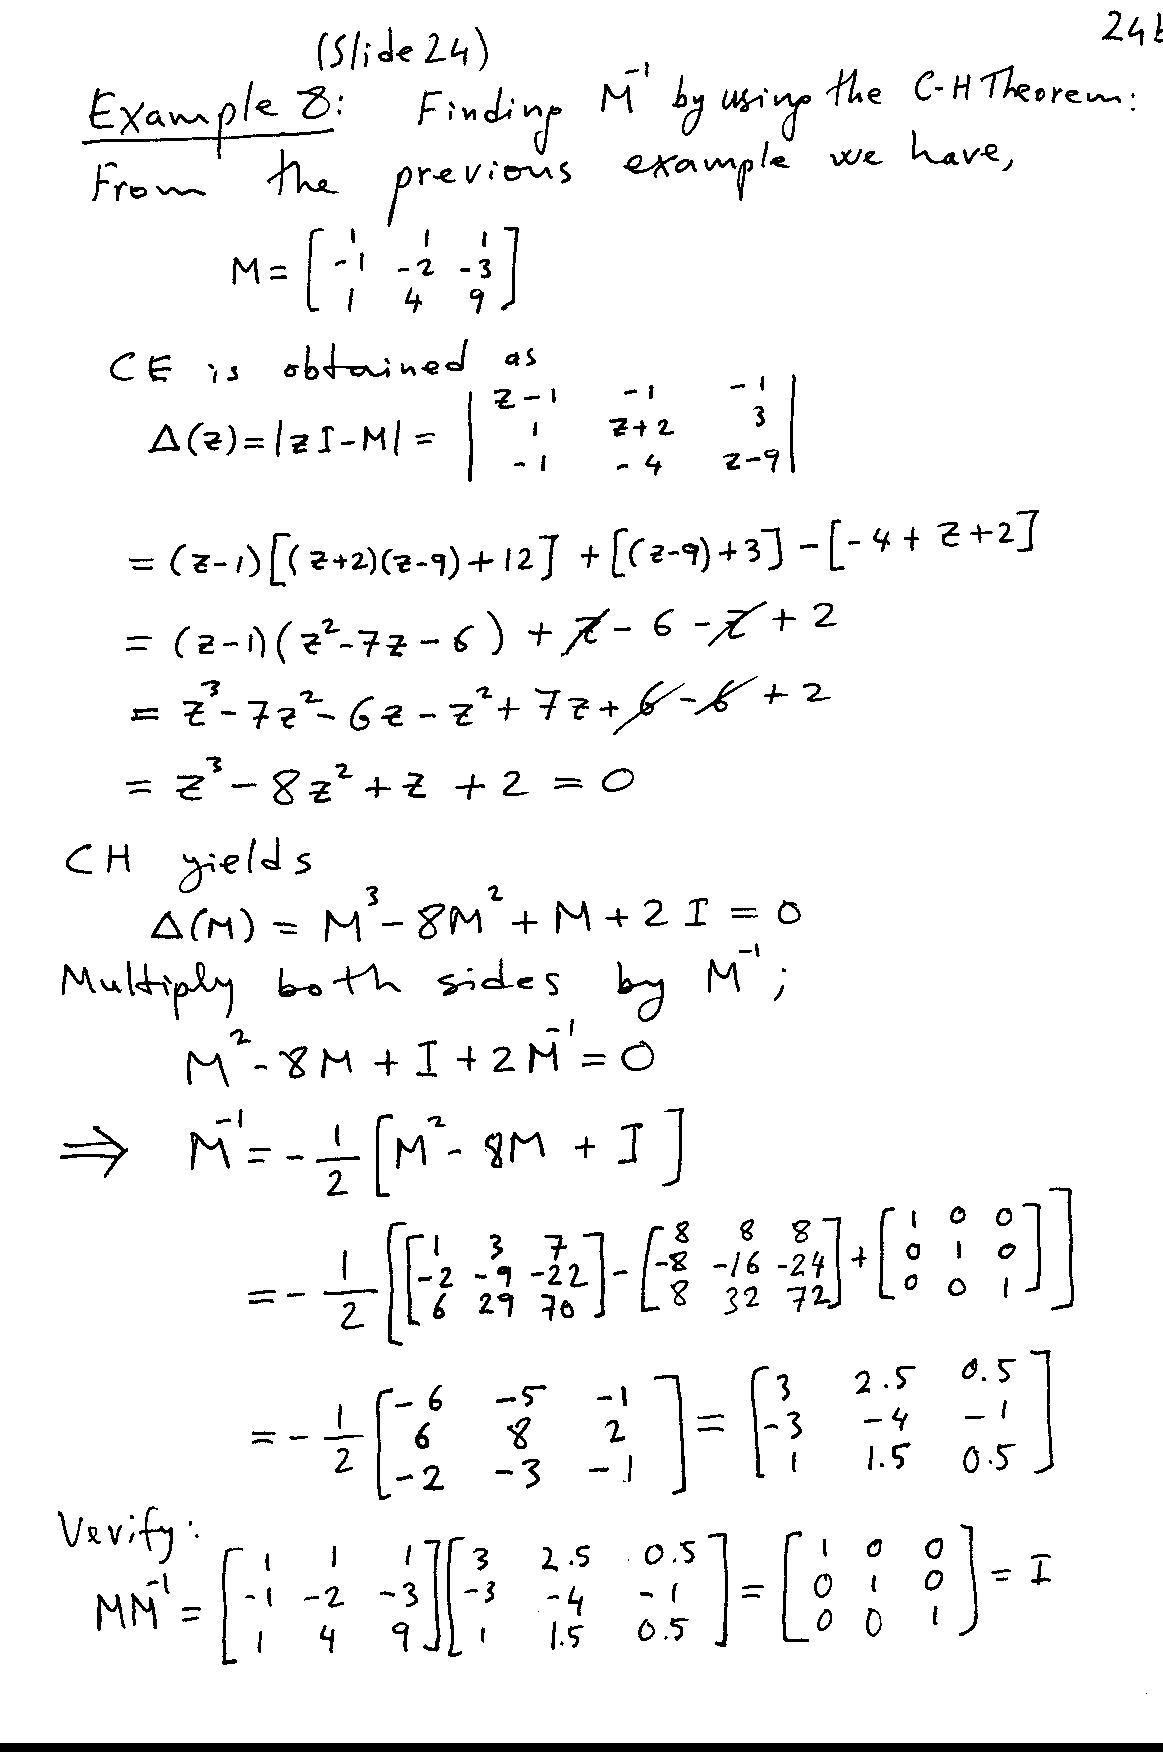 (Slide 24)
24b
Example 8: Finding M⁻¹ by using the C-H Theorem:
From the previous example we have,
M = [1 1 1; -1 -2 -3; 1 4 9]
CE is obtained as
Δ(z) = |zI-M| = |z-1 -1 -1; 1 z+2 3; -1 -4 z-9|
= (z-1)[(z+2)(z-9)+12] + [(z-9)+3] - [-4+z+2]
= (z-1)(z²-7z-6) + z - 6 - z + 2
= z³-7z²-6z-z²+7z+6-6+2
= z³-8z²+z+2 = 0
CH yields
Δ(M) = M³-8M²+M+2I = 0
Multiply both sides by M⁻¹;
M²-8M+I+2M⁻¹=0
⇒ M⁻¹ = -1/2 [M²-8M+I]
= -1/2 [[1 3 7; -2 -9 -22; 6 29 70] - [8 8 8; -8 -16 -24; 8 32 72] + [1 0 0; 0 1 0; 0 0 1]]
= -1/2 [-6 -5 -1; 6 8 2; -2 -3 -1] = [3 2.5 0.5; -3 -4 -1; 1 1.5 0.5]
Verify:
MM⁻¹ = [1 1 1; -1 -2 -3; 1 4 9][3 2.5 0.5; -3 -4 -1; 1 1.5 0.5] = [1 0 0; 0 1 0; 0 0 1] = I